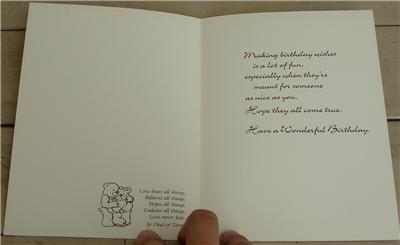 Love bears all things,
Believes all things,
Hopes all things,
Endures all things,
Love never fails.
Making birthday wishes
is a lot of fun,
especially when they're
meant for someone
as nice as you.
Hope they all come true.
Have a Wonderful Birthday.